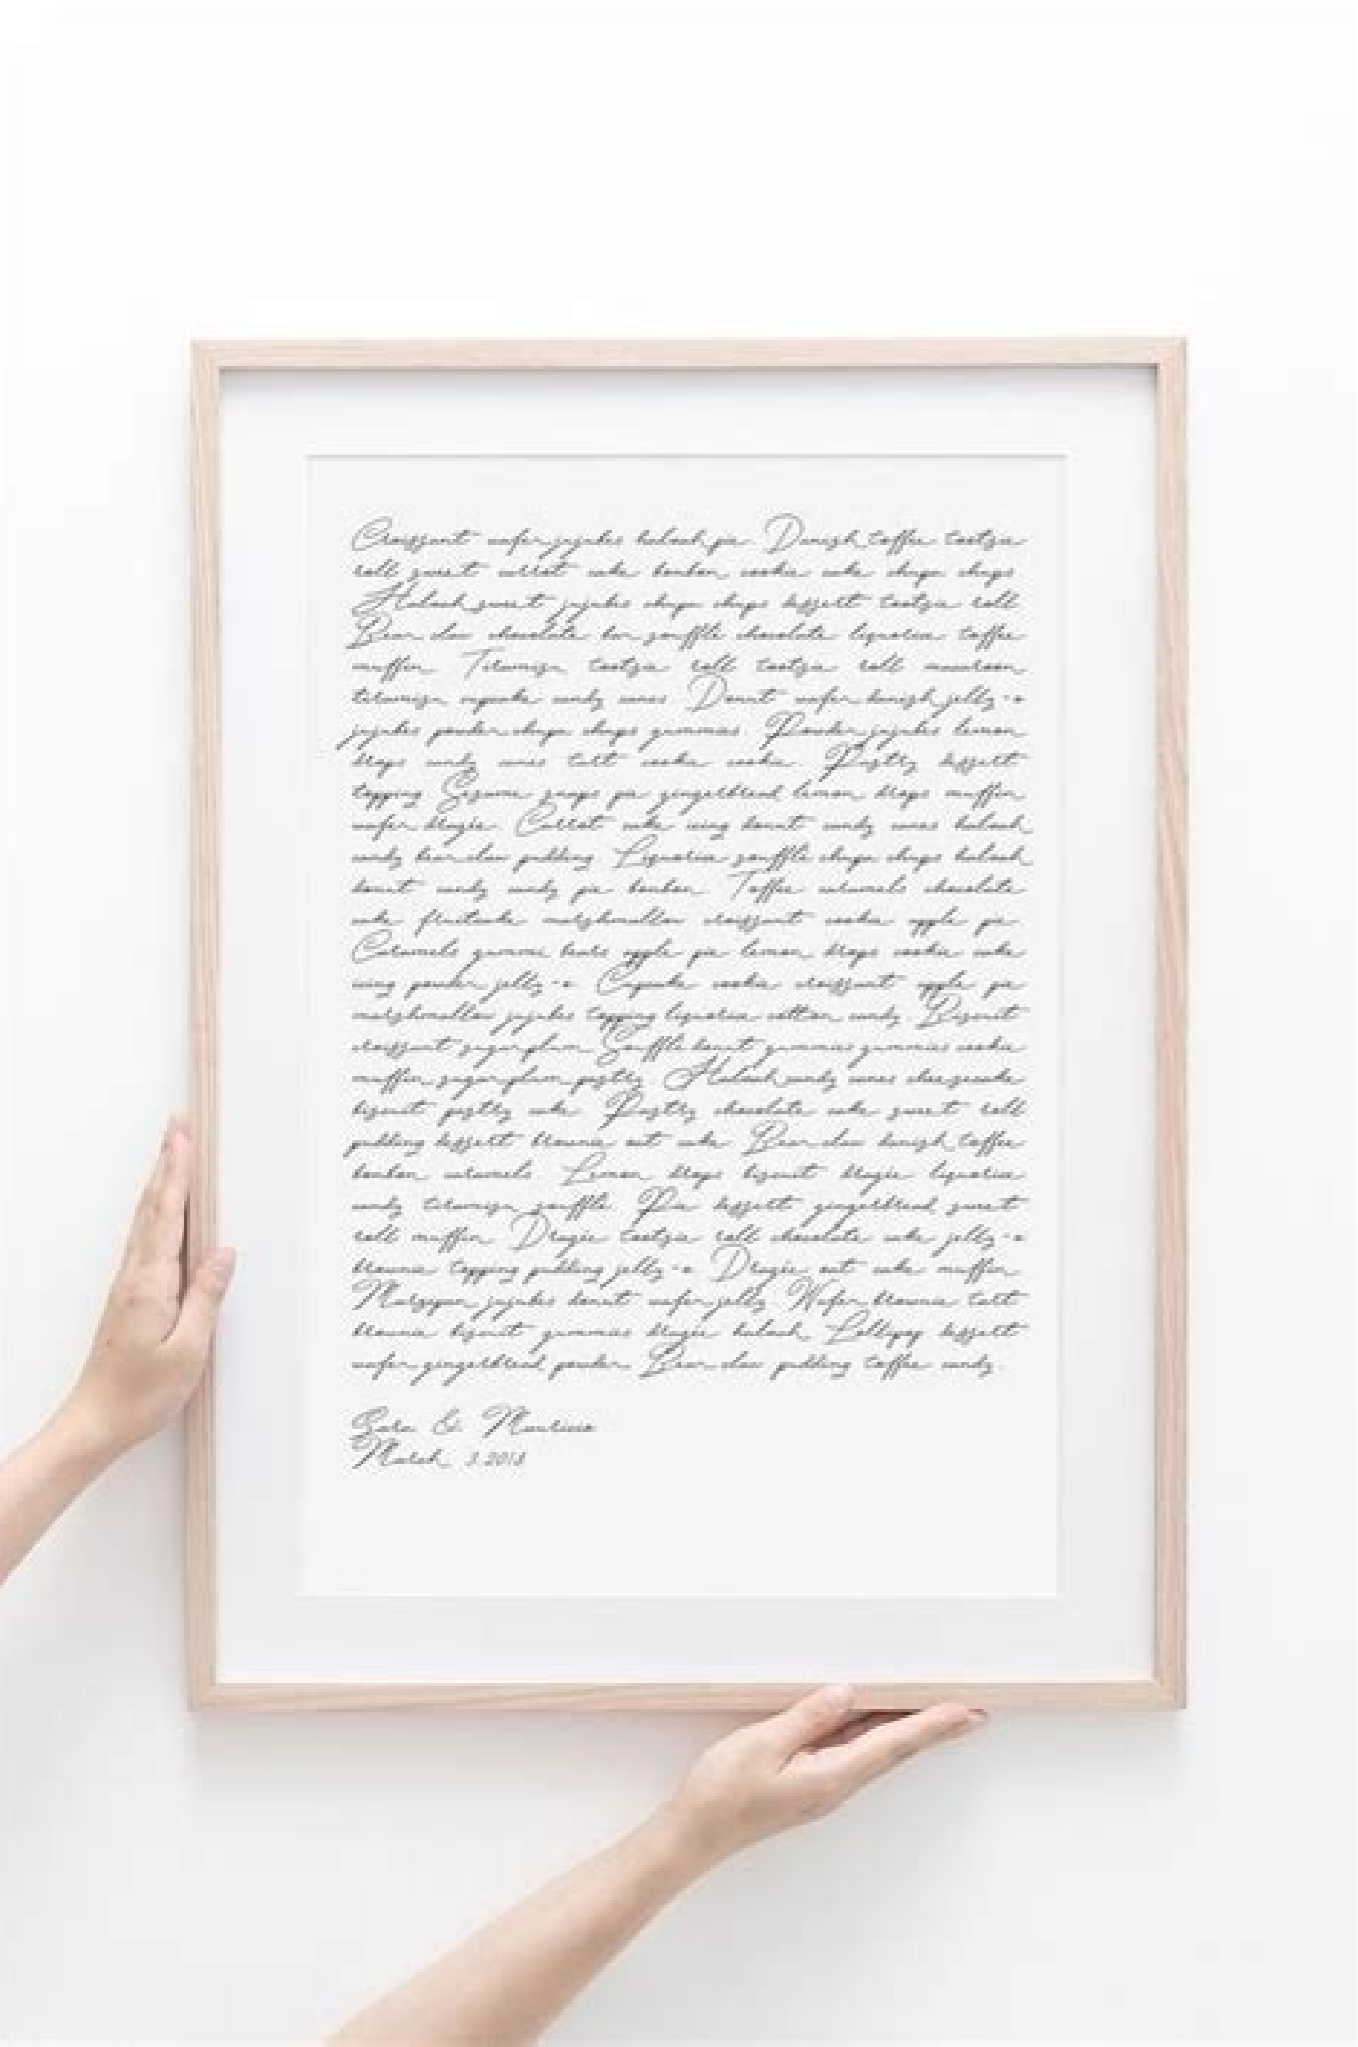 Croissant wafer jujubes halvah pie. Danish toffee tootsie
roll sweet carrot cake bonbon cookie cake chupa chups.
Halvah sweet jujubes chupa chups dessert tootsie roll.
Bear claw chocolate bar soufflé chocolate liquorice toffee
muffin. Tiramisu tootsie roll tootsie roll macaroon
tiramisu cupcake candy canes. Donut wafer danish jelly-o
jujubes powder chupa chups gummies. Powder jujubes lemon
drops candy canes tart cookie cookie. Pastry dessert
topping. Sesame snaps pie gingerbread lemon drops muffin
wafer dragée. Carrot cake icing donut candy canes halvah
candy bear claw pudding. Liquorice soufflé chupa chups halvah
donut candy candy pie bonbon. Toffee caramels chocolate
cake fruitcake marshmallow croissant cookie apple pie.
Caramels gummi bears apple pie lemon drops cookie cake
icing powder jelly-o. Cupcake cookie croissant apple pie
marshmallow jujubes topping liquorice cotton candy. Biscuit
croissant sugar plum. Soufflé donut gummies gummies cookie
muffin sugar plum pastry. Halvah candy canes cheesecake
biscuit pastry cake. Pastry chocolate cake sweet roll
pudding dessert brownie oat cake. Bear claw danish toffee
bonbon caramels. Lemon drops biscuit dragée liquorice
candy tiramisu soufflé. Pie dessert gingerbread sweet
roll muffin. Dragée tootsie roll chocolate cake jelly-o
brownie topping pudding jelly-o. Dragée oat cake muffin.
Marzipan jujubes donut wafer jelly. Wafer brownie tart
brownie biscuit gummies dragée halvah. Lollipop dessert
wafer gingerbread powder. Bear claw pudding toffee candy.
Sara & Mauricio
March 3.2018